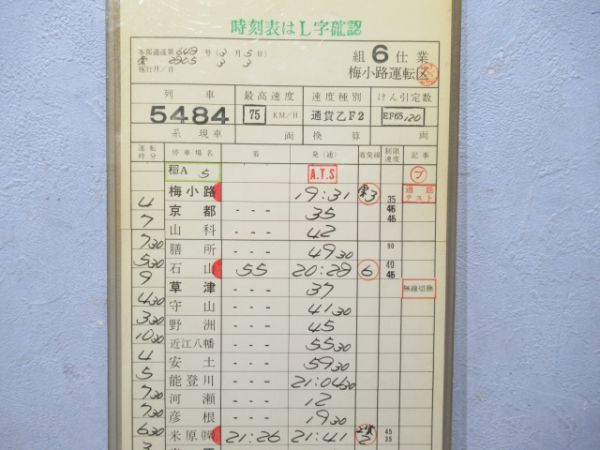 時刻表はL字確認
組 6 仕業
梅小路運転区
列車 最高速度 速度種別 けん引定数
5484 75 KM/H 通貨乙F2 EF65 120
系 現車 両 換算 両
運転時分 停車場名 着 発(通) 着発線 制限速度 記事
稲A S A.T.S
梅小路 19:31 3 35 通話テスト
4 京都 --- 35 45 45
7 山科 --- 42
730 膳所 --- 4930 90
530 石山 55 20:28 6 40 45
9 草津 --- 37 無線切換
430 守山 --- 4130
330 野洲 --- 45
1030 近江八幡 --- 5530
4 安土 --- 5930
5 能登川 --- 21:0430
730 河瀬 --- 12
730 彦根 --- 1930
630 米原 21:26 21:41 2 45 35
3